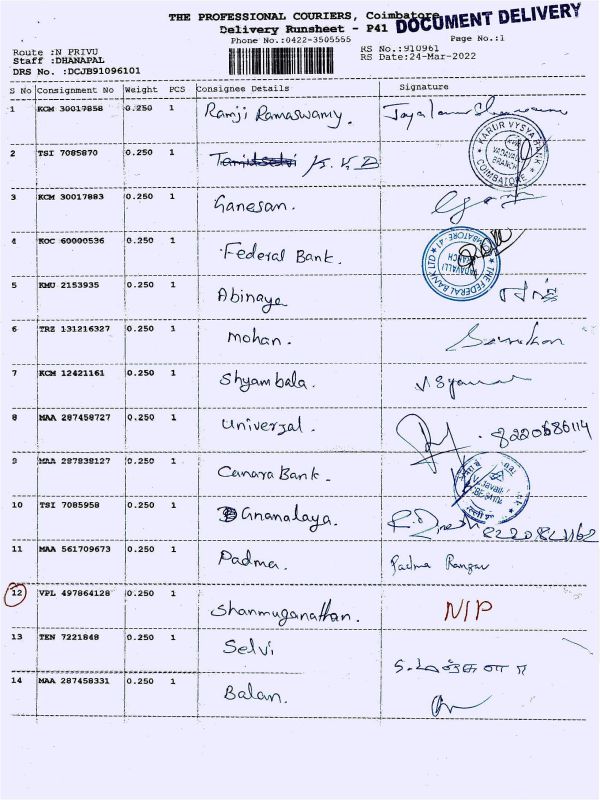 THE PROFESSIONAL COURIERS, Coimbatore
DOCUMENT DELIVERY
Delivery Runsheet - P41
Phone No.:0422-3505555
Page No.:1
Route :N PRIVU
Staff :DHANAPAL
DRS No. :DCJB91096101
RS No.:910961
RS Date:24-Mar-2022
S No Consignment No Weight PCS Consignee Details Signature
1 KCM 30017858 0.250 1 Ramji Ramaswamy.
KARUR VYSYA BANK
VADAVALLI
BRANCH
COIMBATORE
2 TSI 7085870 0.250 1 K.V.B
3 KCM 30017883 0.250 1 Ganesan.
4 KOC 60000536 0.250 1 Federal Bank.
THE FEDERAL BANK LTD
VADAVALLI
BRANCH
5 KMU 2153935 0.250 1 Abinaya
6 TRZ 131216327 0.250 1 Mohan.
7 KCM 12421161 0.250 1 Shyambala.
8 MAA 287458727 0.250 1 Universal. 8220686114
9 MAA 287838127 0.250 1 Canara Bank.
10 TSI 7085958 0.250 1 Gnanalaya.
11 MAA 561709673 0.250 1 Padma. Padma Rangan
12 VPL 497864128 0.250 1 Shanmuganathan. N/P
13 TEN 7221848 0.250 1 Selvi
14 MAA 287458331 0.250 1 Balan.